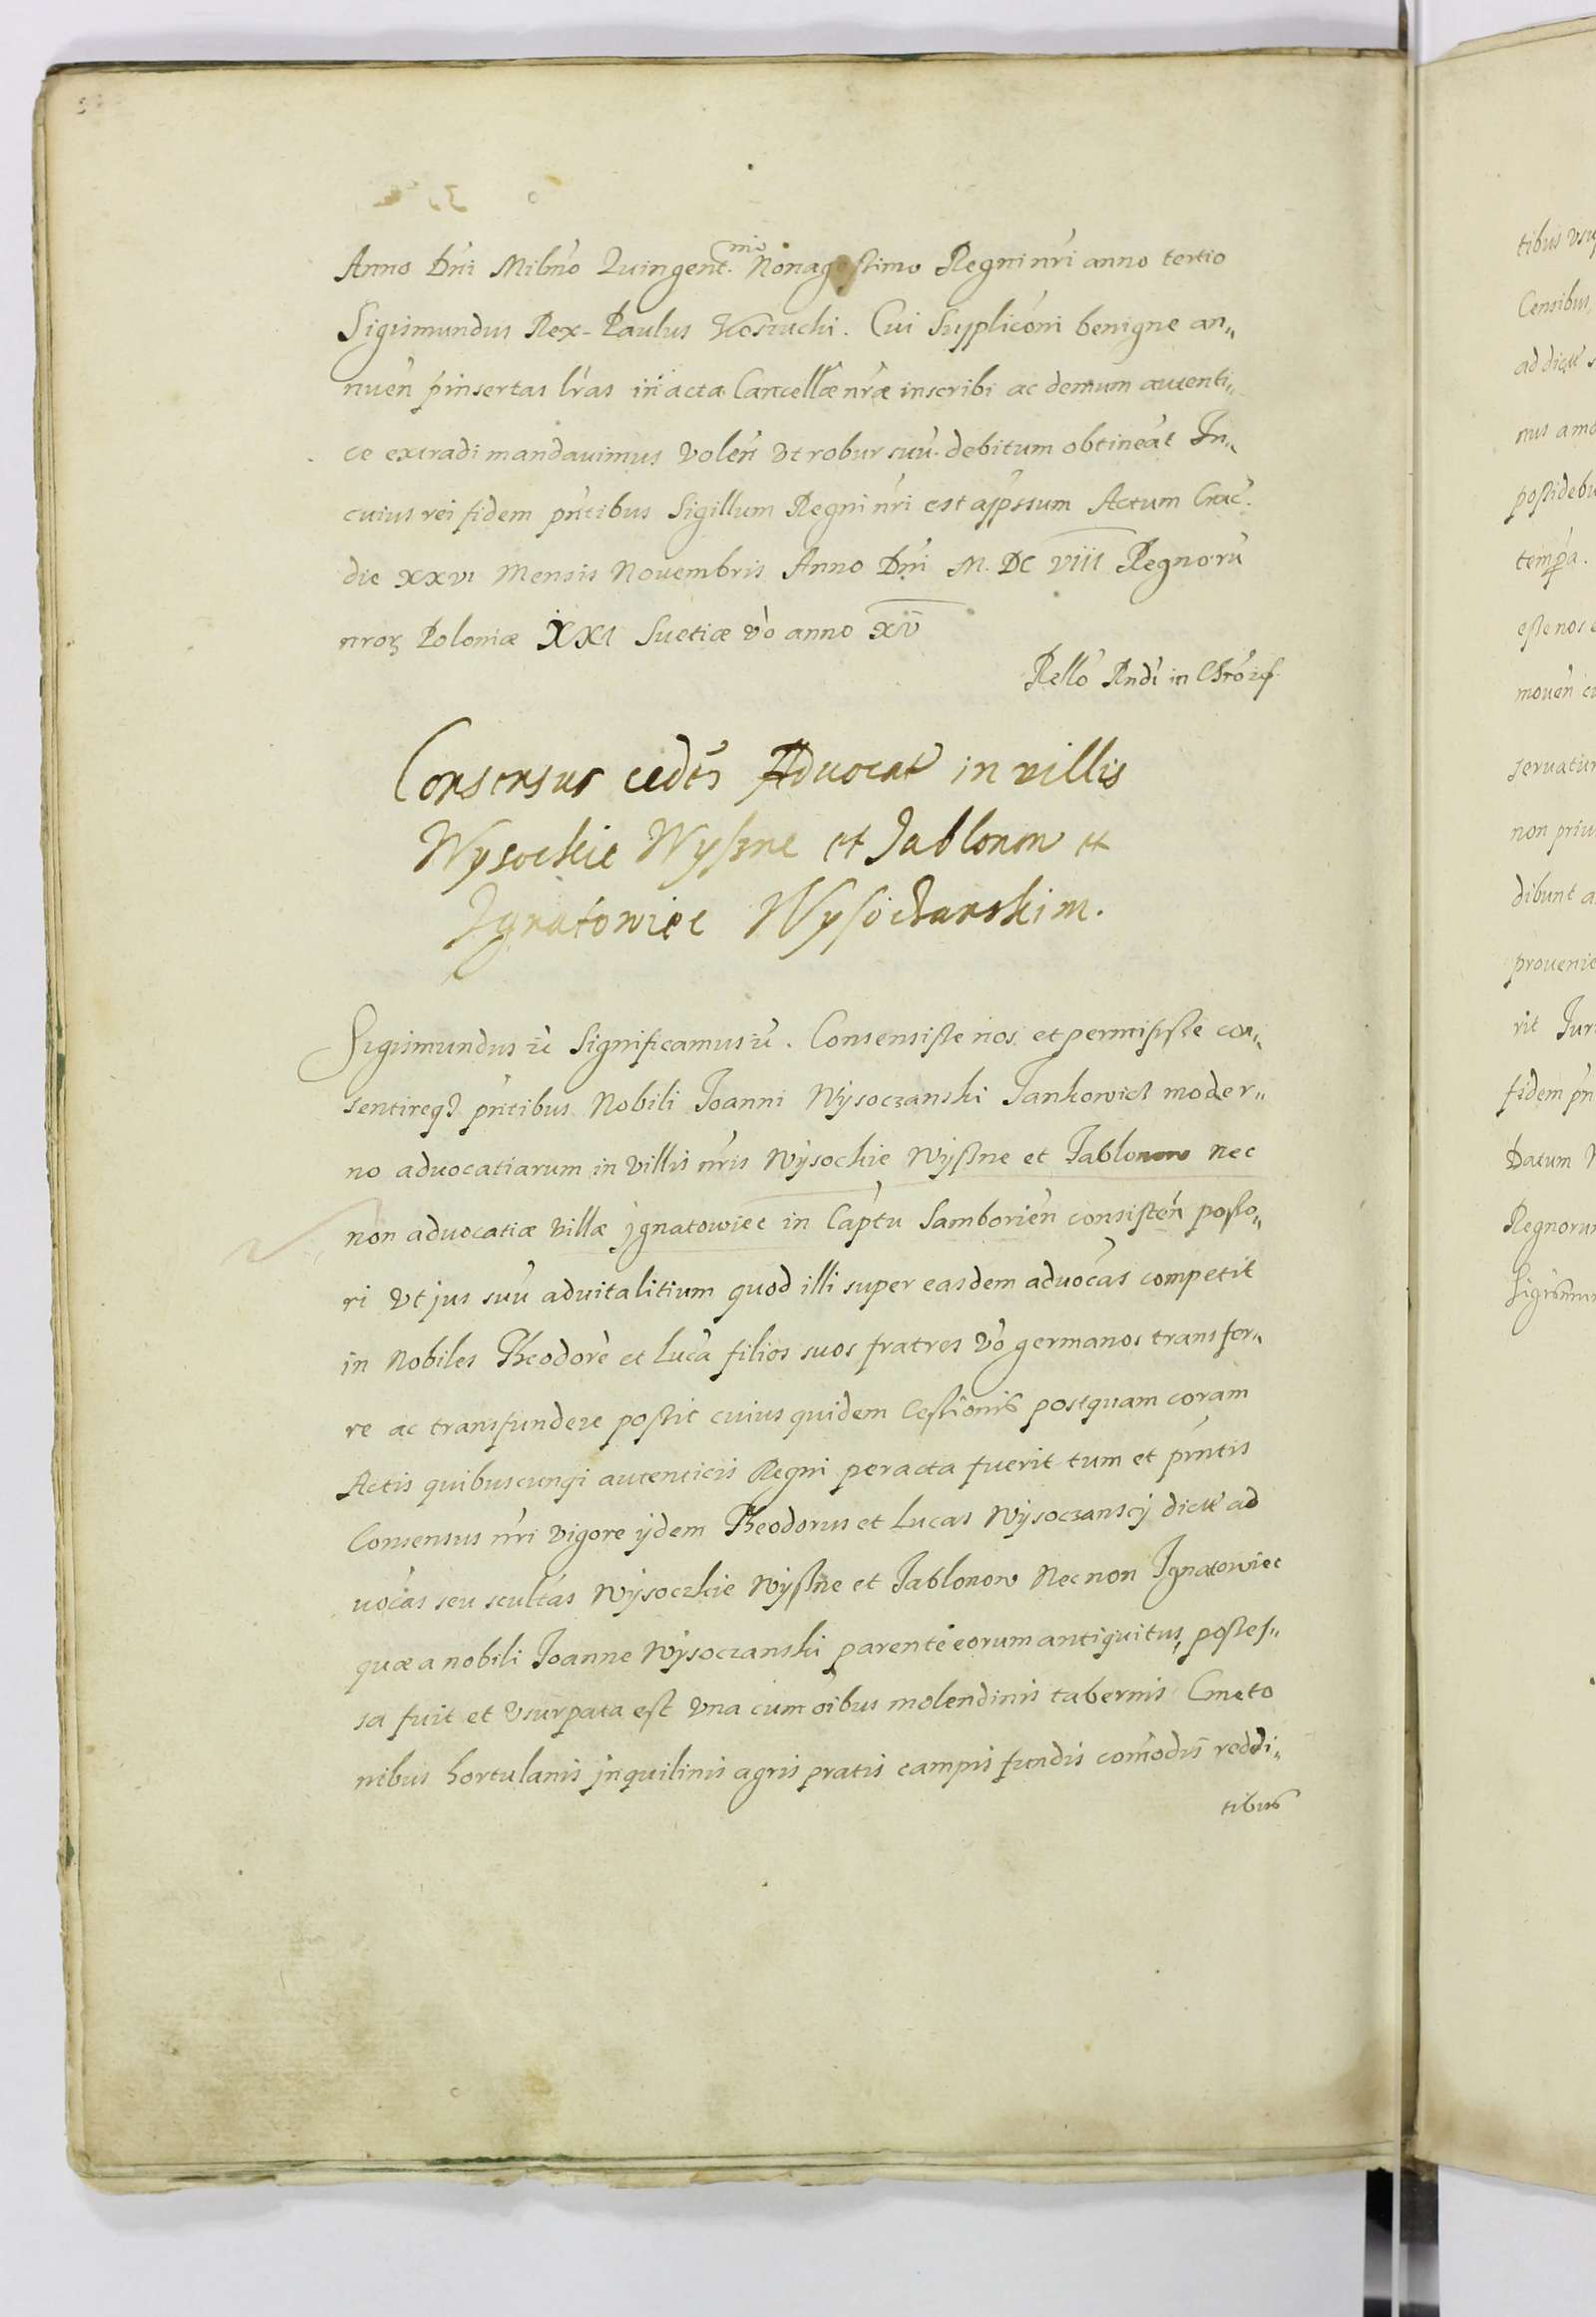 Anno Dñi Milñō Quingent.mo Nonagesimo Regni nr̃i anno tertio
Sigismundus Rex - Paulus Koszucki. Cui Supplicõni benigne an„
nuen̄ p̄insertas lr̃as in acta Cancellæ nr̃æ inscribi ac demum autenti„
ce extradi mandauimus volen̄ vt robur suū debitum obtineat In„
cuius rei fidem pn̄tibus Sigillum Regni nr̃i est appssum Actum Crac̄.
die XXVI Mensis Nouembris Anno Dñi M. DC VIII Regnorū
nroꝝ Poloniæ XXI Suetiæ v̄o anno XV
Rello Rndi in Chro
Consensus cedēn Aduocat in villis
Wysockie Wyszne et Jablonow et
Ignatowiec Wysoczanskim.
Sigismundus ꝛc̄ Significamus ꝛc̄. Consensisse nos et permisisse con„
sentireqȝ pn̄tibus Nobili Joanni Wysoczanski Jankowicz moder„
no aduocatiarum in villis nr̃is Wysockie Wyszne et Jablonow nec
non aduocatiæ villæ Jgnatowiec in Capt̃u Samborien̄ consisten̄ posso„
ri vt jus suū aduitalitium quod illi super easdem aduoc̃as competit
in Nobiles Theodorē et Lucā filios suos fratres v̄o germanos transfer„
re ac transfundere possit cuius quidem Cessionis postquam coram
Actis quibuscunqi autenticis Regni peracta fuerit tum et pr̄ntis
Consensus nr̃i vigore ijdem Theodorus et Lucas Wysoczanscij dictæ ad
uoc̃as seu scult̃as Wysoczkie Wyszne et Jablonow Nec non Jgnatowiec
quæ a nobili Joanne Wysoczanski parente eorum antiquitus posses„
sa fuit et vsurpata est vna cum õibus molendinis tabernis Cmeto
nibus hortulanis jnquilinis agris pratis campis fundis com̃odis reddi„
tibus